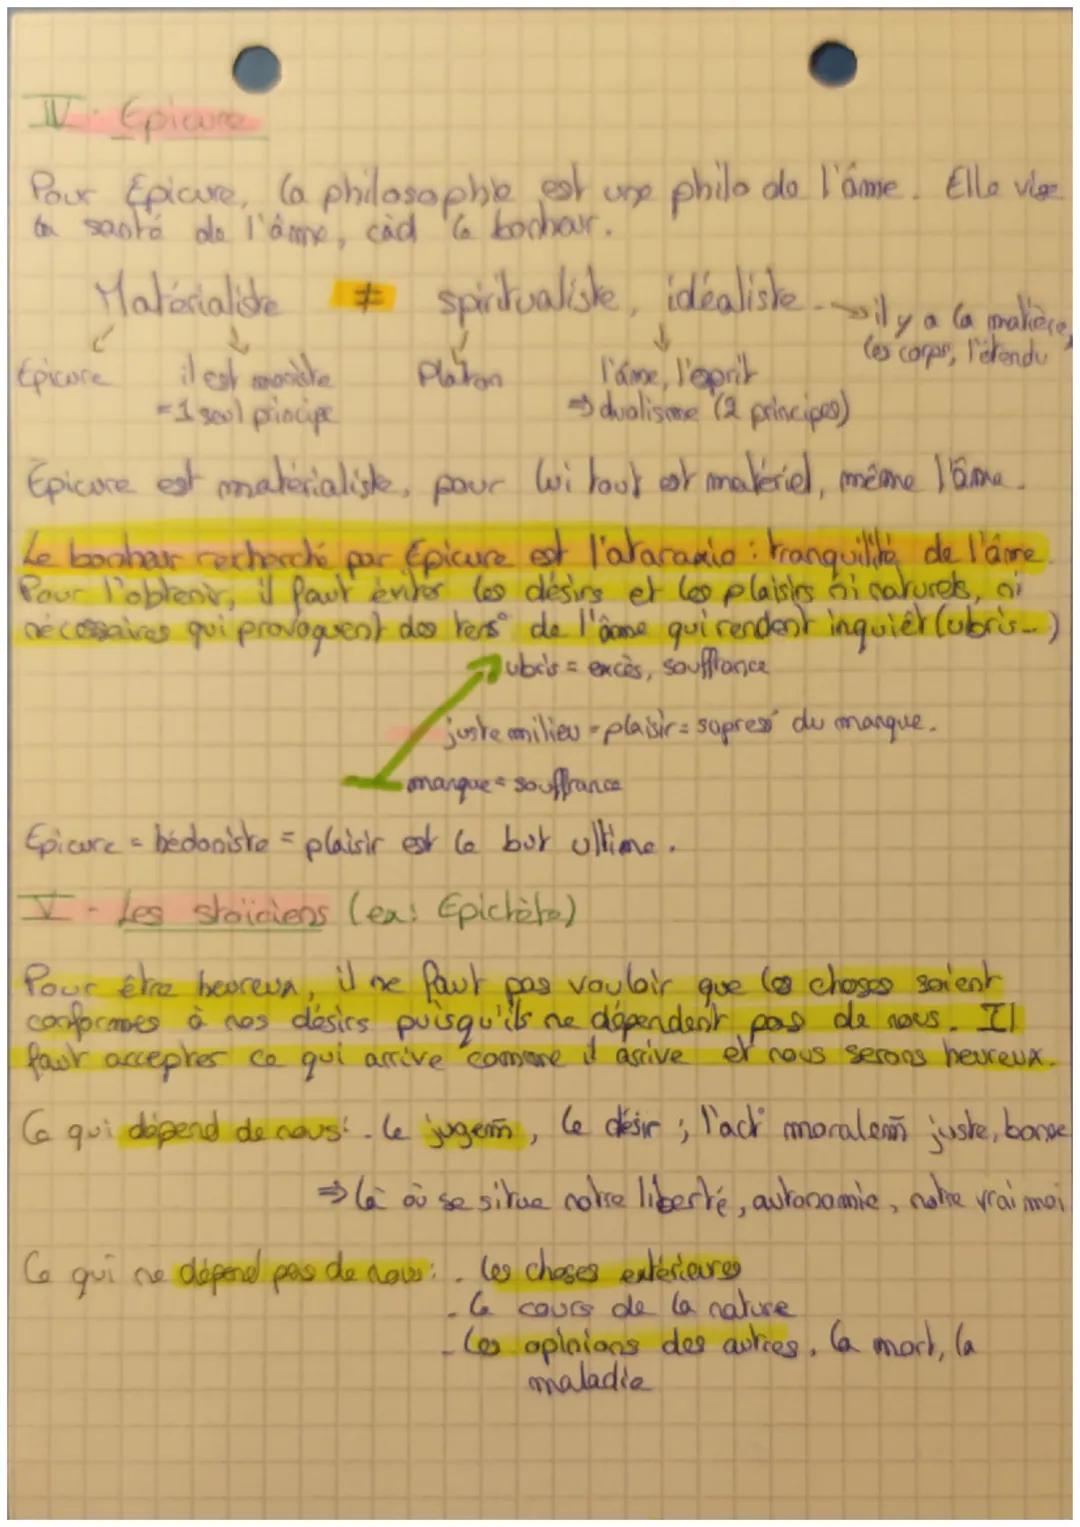 IV - Epicure
Pour Epicure, la philosophie est une philo de l'âme. Elle vise
la santé de l'âme, càd le bonheur.
Matérialiste ≠ spiritualiste, idéaliste. → il y a la matière,
les corps, l'étendu
Epicure il est moniste Platon l'âme, l'esprit
= 1 seul principe ⇒ dualisme (2 principes)
Epicure est matérialiste, pour lui tout est matériel, même l'âme.
Le bonheur recherché par Epicure est l'ataraxie : tranquilité de l'âme.
Pour l'obtenir, il faut éviter les désirs et les plaisirs ni naturels, ni
nécessaires qui provoquent des tens° de l'âme qui rendent inquiêt (ubris...)
ubris = excès, souffrance
juste milieu = plaisir = supress° du manque.
manque = souffrance
Epicure = hédoniste = plaisir est le but ultime.
V - Les stoïciens (ex: Epictète)
Pour être heureux, il ne faut pas vouloir que les choses soient
conformes à nos désirs puisqu'ils ne dépendent pas de nous. Il
faut accepter ce qui arrive comme il arrive et nous serons heureux.
Ce qui dépend de nous: - le jugem̄, le désir ; l'act° moralem̄ juste, bonne
⇒ là où se situe notre liberté, autonomie, notre vrai moi
Ce qui ne dépend pas de nous: - les choses extérieures
- le cours de la nature
- les opinions des autres, la mort, la
maladie